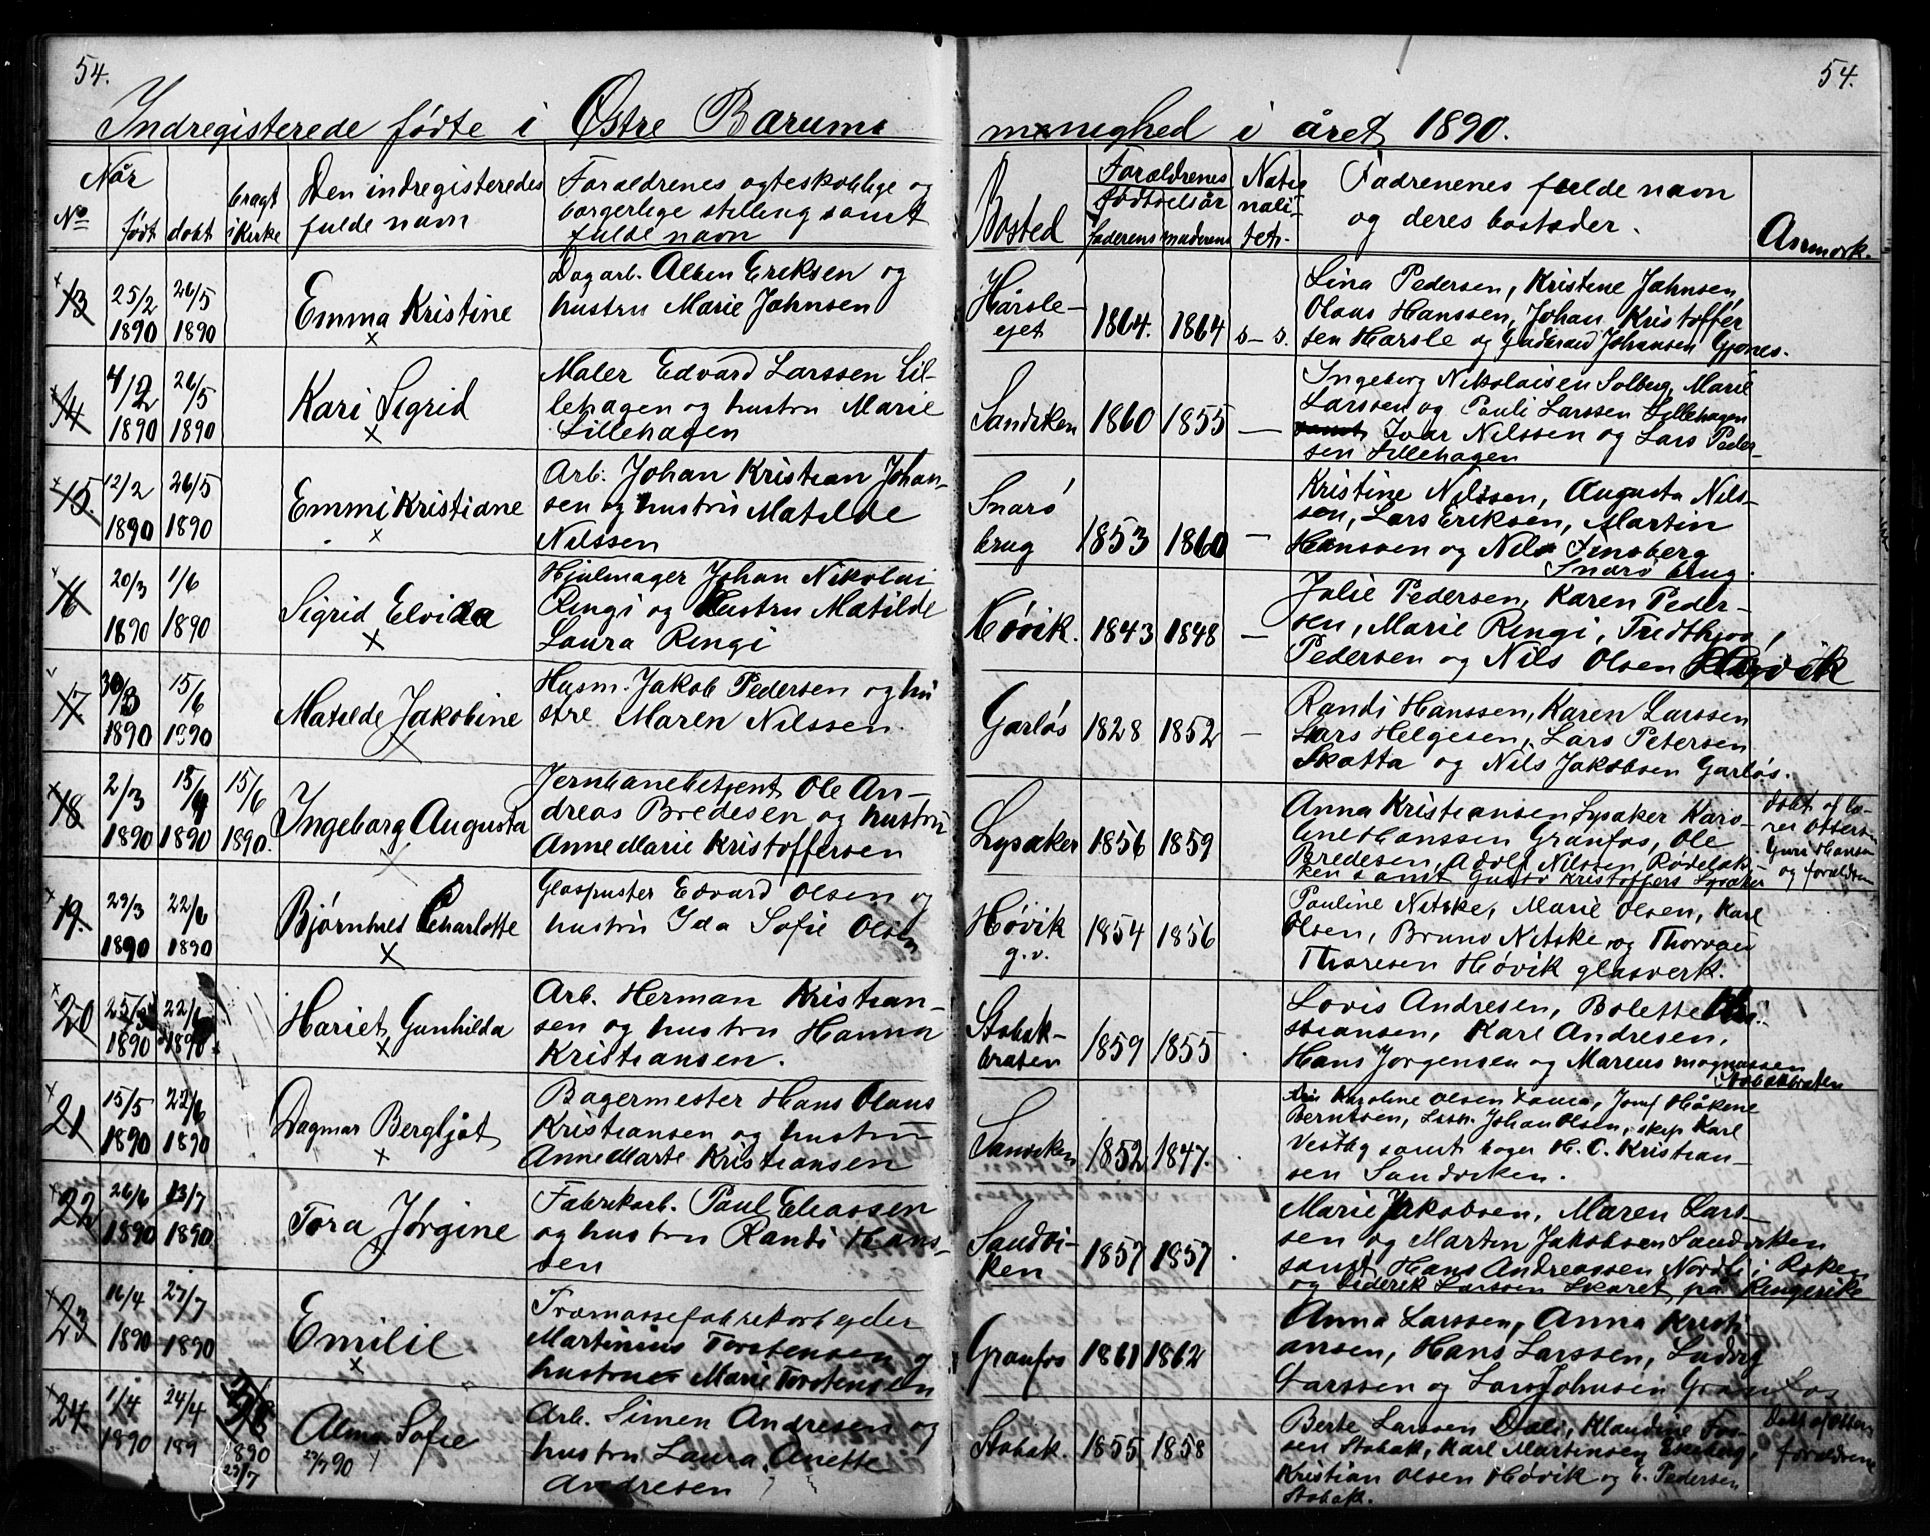 54.
54.
Indregisterede fødte i Østre Bærums
menighed i året 1890.
Når
No
født
døbt
bragt i kirke
Den indregisteredes
fulde navn
Forældrenes ægteskablige og
borgerlige stilling samt
fulde navn
Bosted
Forældrenes
fødselsår
faderens
moderens
Natio
nali-
tet.
Fadrenenes fulde navn
og deres bostæder.
Anmærk.
13
25/2
1890
26/5
1890
Emma Kristine
Dagarb. Alben Eriksen og
hustru Marie Johnsen
Hårsle-
ejet
1864.
1864
s–s.
Lina Pedersen, Kristine Johnsen
Olaus Hanssen, Johan Kristoffer
sen Harsle og Gudbrand Johansen Gjønes.
14
4/2
1890
26/5
1890
Kari Sigrid
Maler Edvard Larssen Lil-
lehagen og hustru Marie
Lillehagen
Sandviken
1860
1855
—
Ingeborg Nikolaisen Solberg, Marie
Larssen og Pauli Larssen Lillehagen
samt Ivar Nilssen og Lars Peder-
sen Lillehagen
15.
12/2
1890
26/5
1890
Emmi Kristiane
Arb. Johan Kristian Johan-
sen og hustru Matilde
Nilssen
Snarø
brug
1853
1860
—
Kristine Nilssen, Augusta Nils-
sen, Lars Eriksen, Martin
Hanssen og Nils Finsberg
Snarø brug.
16
20/3
1890
1/6
1890
Sigrid Elvida
Hjulmager Johan Nikolai
Ringi og hustru Matilde
Laura Ringi
Høvik.
1843
1848
—
Julie Pedersen, Karen Peder-
sen, Marie Ringi, Fredthjov
Pedersen og Nils Olsen Høvik
17
30/3
1890
15/6
1890
Matilde Jakobine
Husm. Jakob Pedersen og hu
stre Maren Nilssen.
Garløs
1828
1852
—
Randi Hanssen, Karen Larssen
Lars Helgesen, Lars Petersen
Skatta og Nils Jakobsen Garløs.
18
2/3
1890
15/4
1890
15/6
1890.
Ingeborg Augusta
Jernbanebetjent Ole An-
dreas Bredesen og hustru
Anne Marie Kristoffersen
Lysaker
1856
1859
Anna Kristiansen Lysaker Karo-
line Hanssen Granfos, Ole
Bredesen, Adolf Nilsen, Rødeløk-
ken samt Gustv Kristoffers Lysaker
døbt af
og forældrene
19.
29/3
1890
22/6
1890
Bjørnhild Charlotte
Glaspuster Edvard Olsen og
hustru Ida Sofie Olsen
Høvik
g.v.
1854
1856
Pauline Nitske, Marie Olsen, Karl
Olsen, Bruno Nitske og Thorvald
Thoresen Høvik glasverk.
20
25/3
1890
22/6
1890
Hariet Gunhilda
Arb. Herman Kristian-
sen og hustru Hanna
Kristiansen.
Stabæk-
bråten
1859
1855
Lovis Andresen, Bolette Kri-
stiansen, Karl Andresen,
Hans Jørgensen og Marius Magnussen
Stabækbråten
21
15/5
1890
22/6
1890
Dagmar Bergljot
Bagermester Hans Olaus
Kristiansen og hustru
Anne Marte Kristiansen
Sandviken
1852
1847.
Karoline Olsen Jomf Håkine
Berntsen, Johan Olsen, skip Karl
Vestby samt bager H. C. Kristian-
sen Sandviken.
22
26/6
1890
13/7
1890
Tora Jørgine
Fabrikarb. Paul Eliassen
og hustru Randi Hans-
sen
Sandvi-
ken
1857
1857
Marie Jakobsen, Maren Lars-
sen og Martin Jakobsen Sandviken
samt Hans Andreassen Nordli i Røken
og Diderik Larssen Skaret på Ringerike
23
16/4
1890
27/7
1890
Emilie
Træmassefabrikarbejder
Martinius Torstensen og
hustrue Marie Torstensen
Granfos
1861
1862
Anna Larssen, Anna Kristi
ansen, Hans Larssen, Ludvig
Larssen og Lars Johnsen Granfos
24.
1/4
1890
24/4
189
1890
27/7
Alma Sofie
27/7 90
Arb. Simen Andresen og
hustru Laura Anette
Andresen
Stabæk.
1855
1858
Berte Larssen Dæli, Klaudine Fos-
sen Stabæk, Karl Martinsen
Kristian Olsen Høvik og E. Pedersen
Stabæk.
døbt af
forældrene